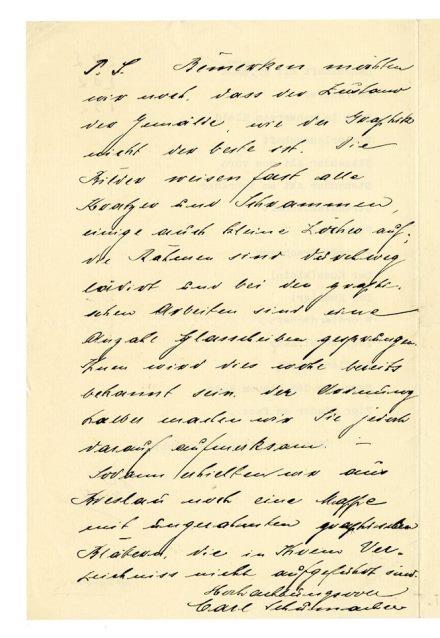 P. S. Bemerken möchten
wir noch, dass der Zustand
der Gemälde, wie der Graphik
nicht der beste ist. Die
Bilder weisen fast alle
Kratzer und Schrammen,
einige auch kleine Löcher auf,
die Rahmen sind durchweg
lädirt und bei den graphi-
schen Arbeiten sind eine
Anzahl Glasscheiben gesprungen.
Ihnen wird dies wohl bereits
bekannt sein, der Ordnung
halber machen wir Sie jedoch
darauf aufmerksam. —
Sodann erhielten wir aus
Breslau noch eine Mappe
mit ungerahmten graphischen
Blättern, die in Ihrem Ver-
zeichniss nicht aufgeführt sind.
Hochachtungsvoll
Carl Schumacher